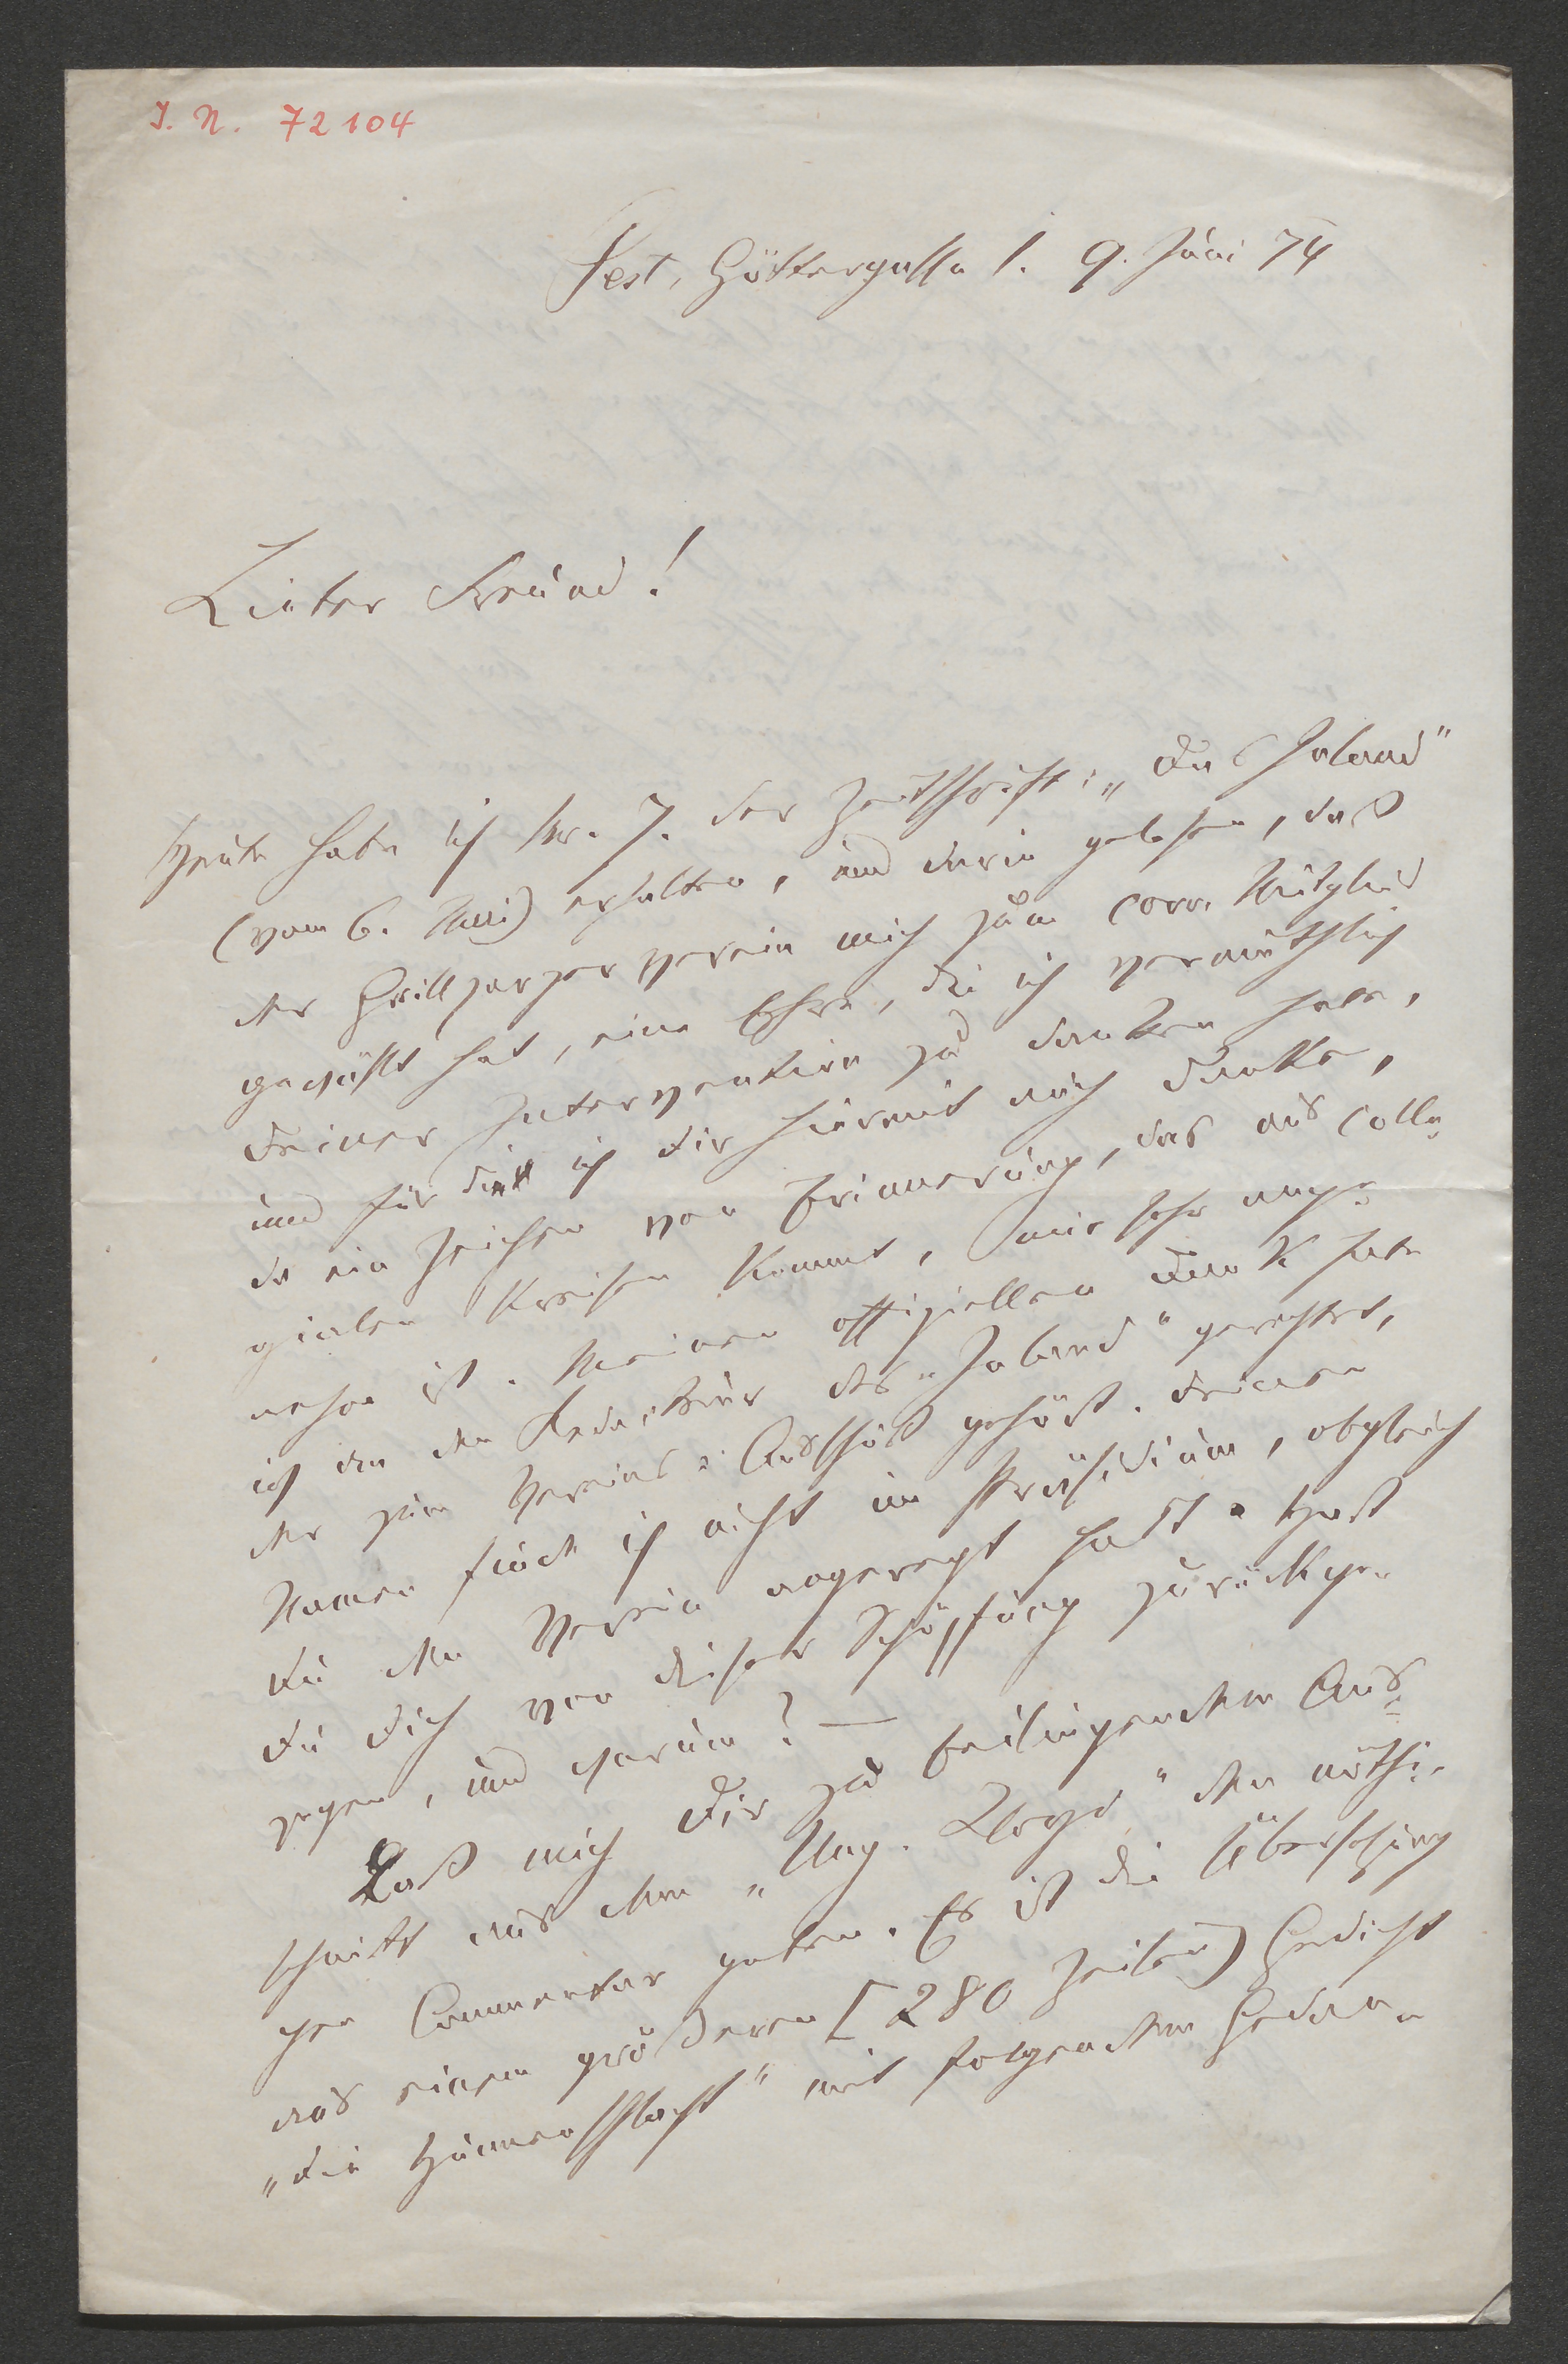 I. N. 72104
Pest, Göttergasse 1. 9. Juni 74
Lieber Freund!
Heute habe ich Nr. 7. der Zeitschrift: „Das Inland"
(vom 6. Mai) erhalten, und darin gelesen, daß
der Grillparzer Verein mich zum corr. Mitglied
gewählt hat, eine Ehre, die ich vermuthlich
Deiner Intervention zu danken habe,
und für die ich Dir hiermit auch danke,
da ein Zeichen von Erinnerung, das aus colle-
gialen Kreisen kommt, mir sehr ange-
nehm ist. Meinen offiziellen Dank habe
ich an den Redakteur des „Inland" gerichtet,
der zum Vereins-Ausschuß gehört. Deinen
Namen finde ich nicht im Präsidium, obgleich
Du den Verein angeregt hast. Hast
Du Dich von dieser Schöpfung zurückge-
zogen, und warum? —
Laß mich Dir zu beiliegendem Aus-
schnitt aus dem „Ung. Lloyd" den nöthi-
gen Commentar geben. Es ist die Übersetzung
aus einem größeren [280 Zeilen) Gedicht
„Die Hunnenschlacht" mit folgendem Gedan-